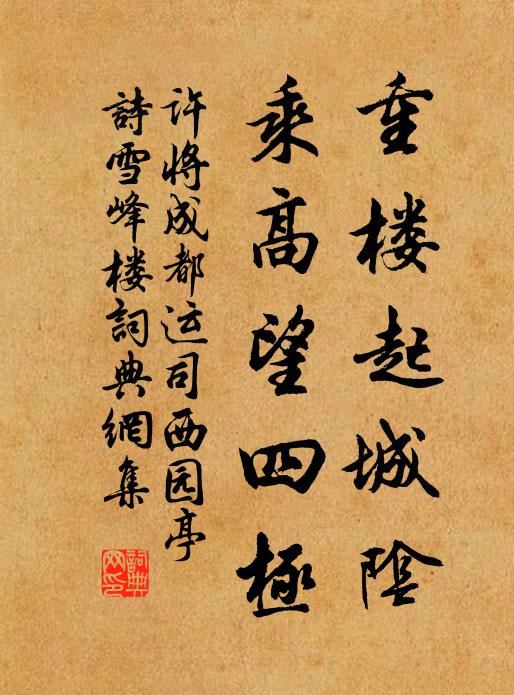 重楼起城陰
乘高望四極
许将成都运司西园亭
詩雪峰楼詞典網集
詞典网印